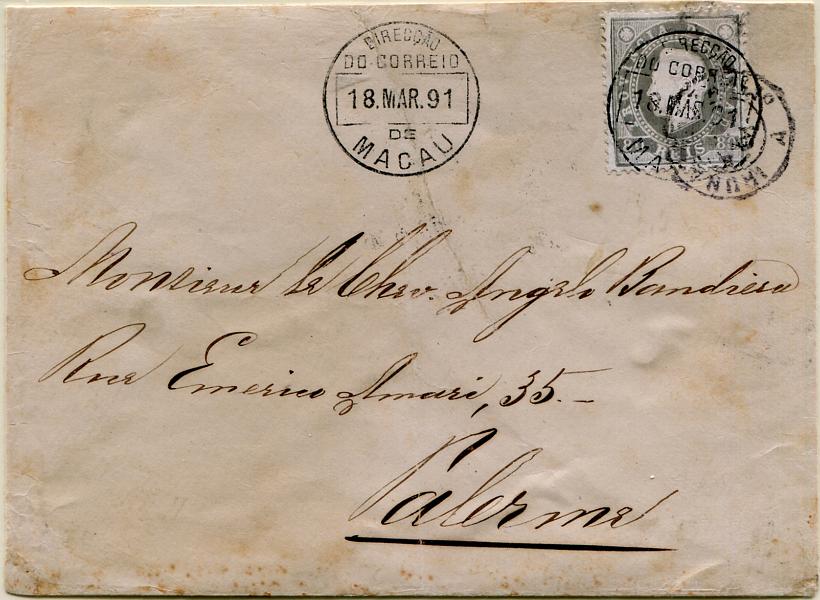 DIRECÇÃO
DO CORREIO
18.MAR.91
DE
MACAU
DIRECÇÃO
DO CORREIO
18.MAR.91
MACAU
REIS
Monsieur le Chev. Angelo Bandiera
Rue Emerico Amari, 35.-
Palerme